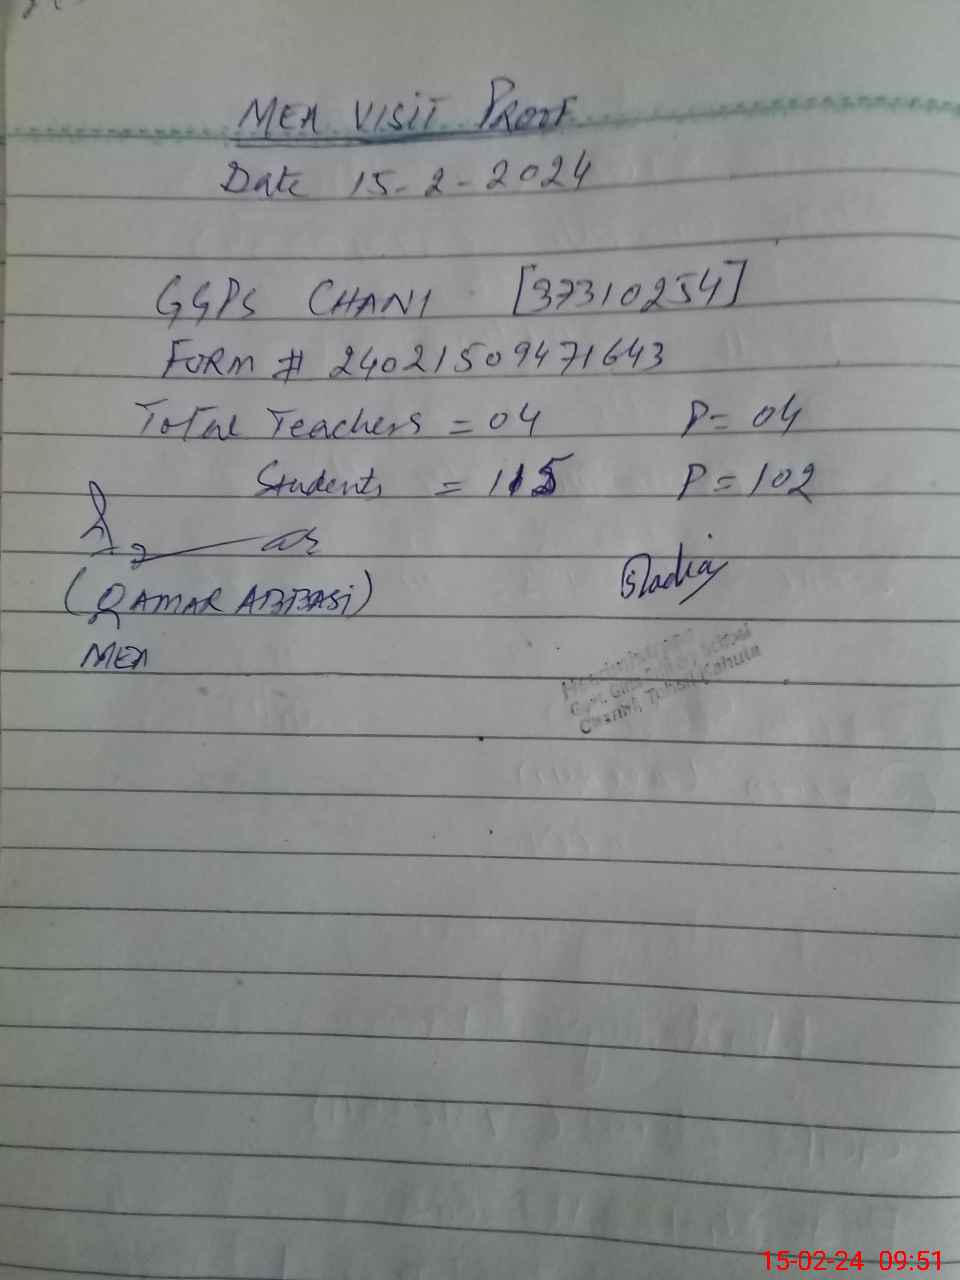 MEA VISIT PROOF
Date 15-2-2024
GGPS CHANI [37310254]
FORM # 24021509471643
Total Teachers = 04 P= 04
Students = 115 P= 102
(QAMAR ABBASI)
MEA
Sadia
Headmistress
Govt. Girls Primary School
Channi, Tehsil Kahuta
15-02-24 09:51